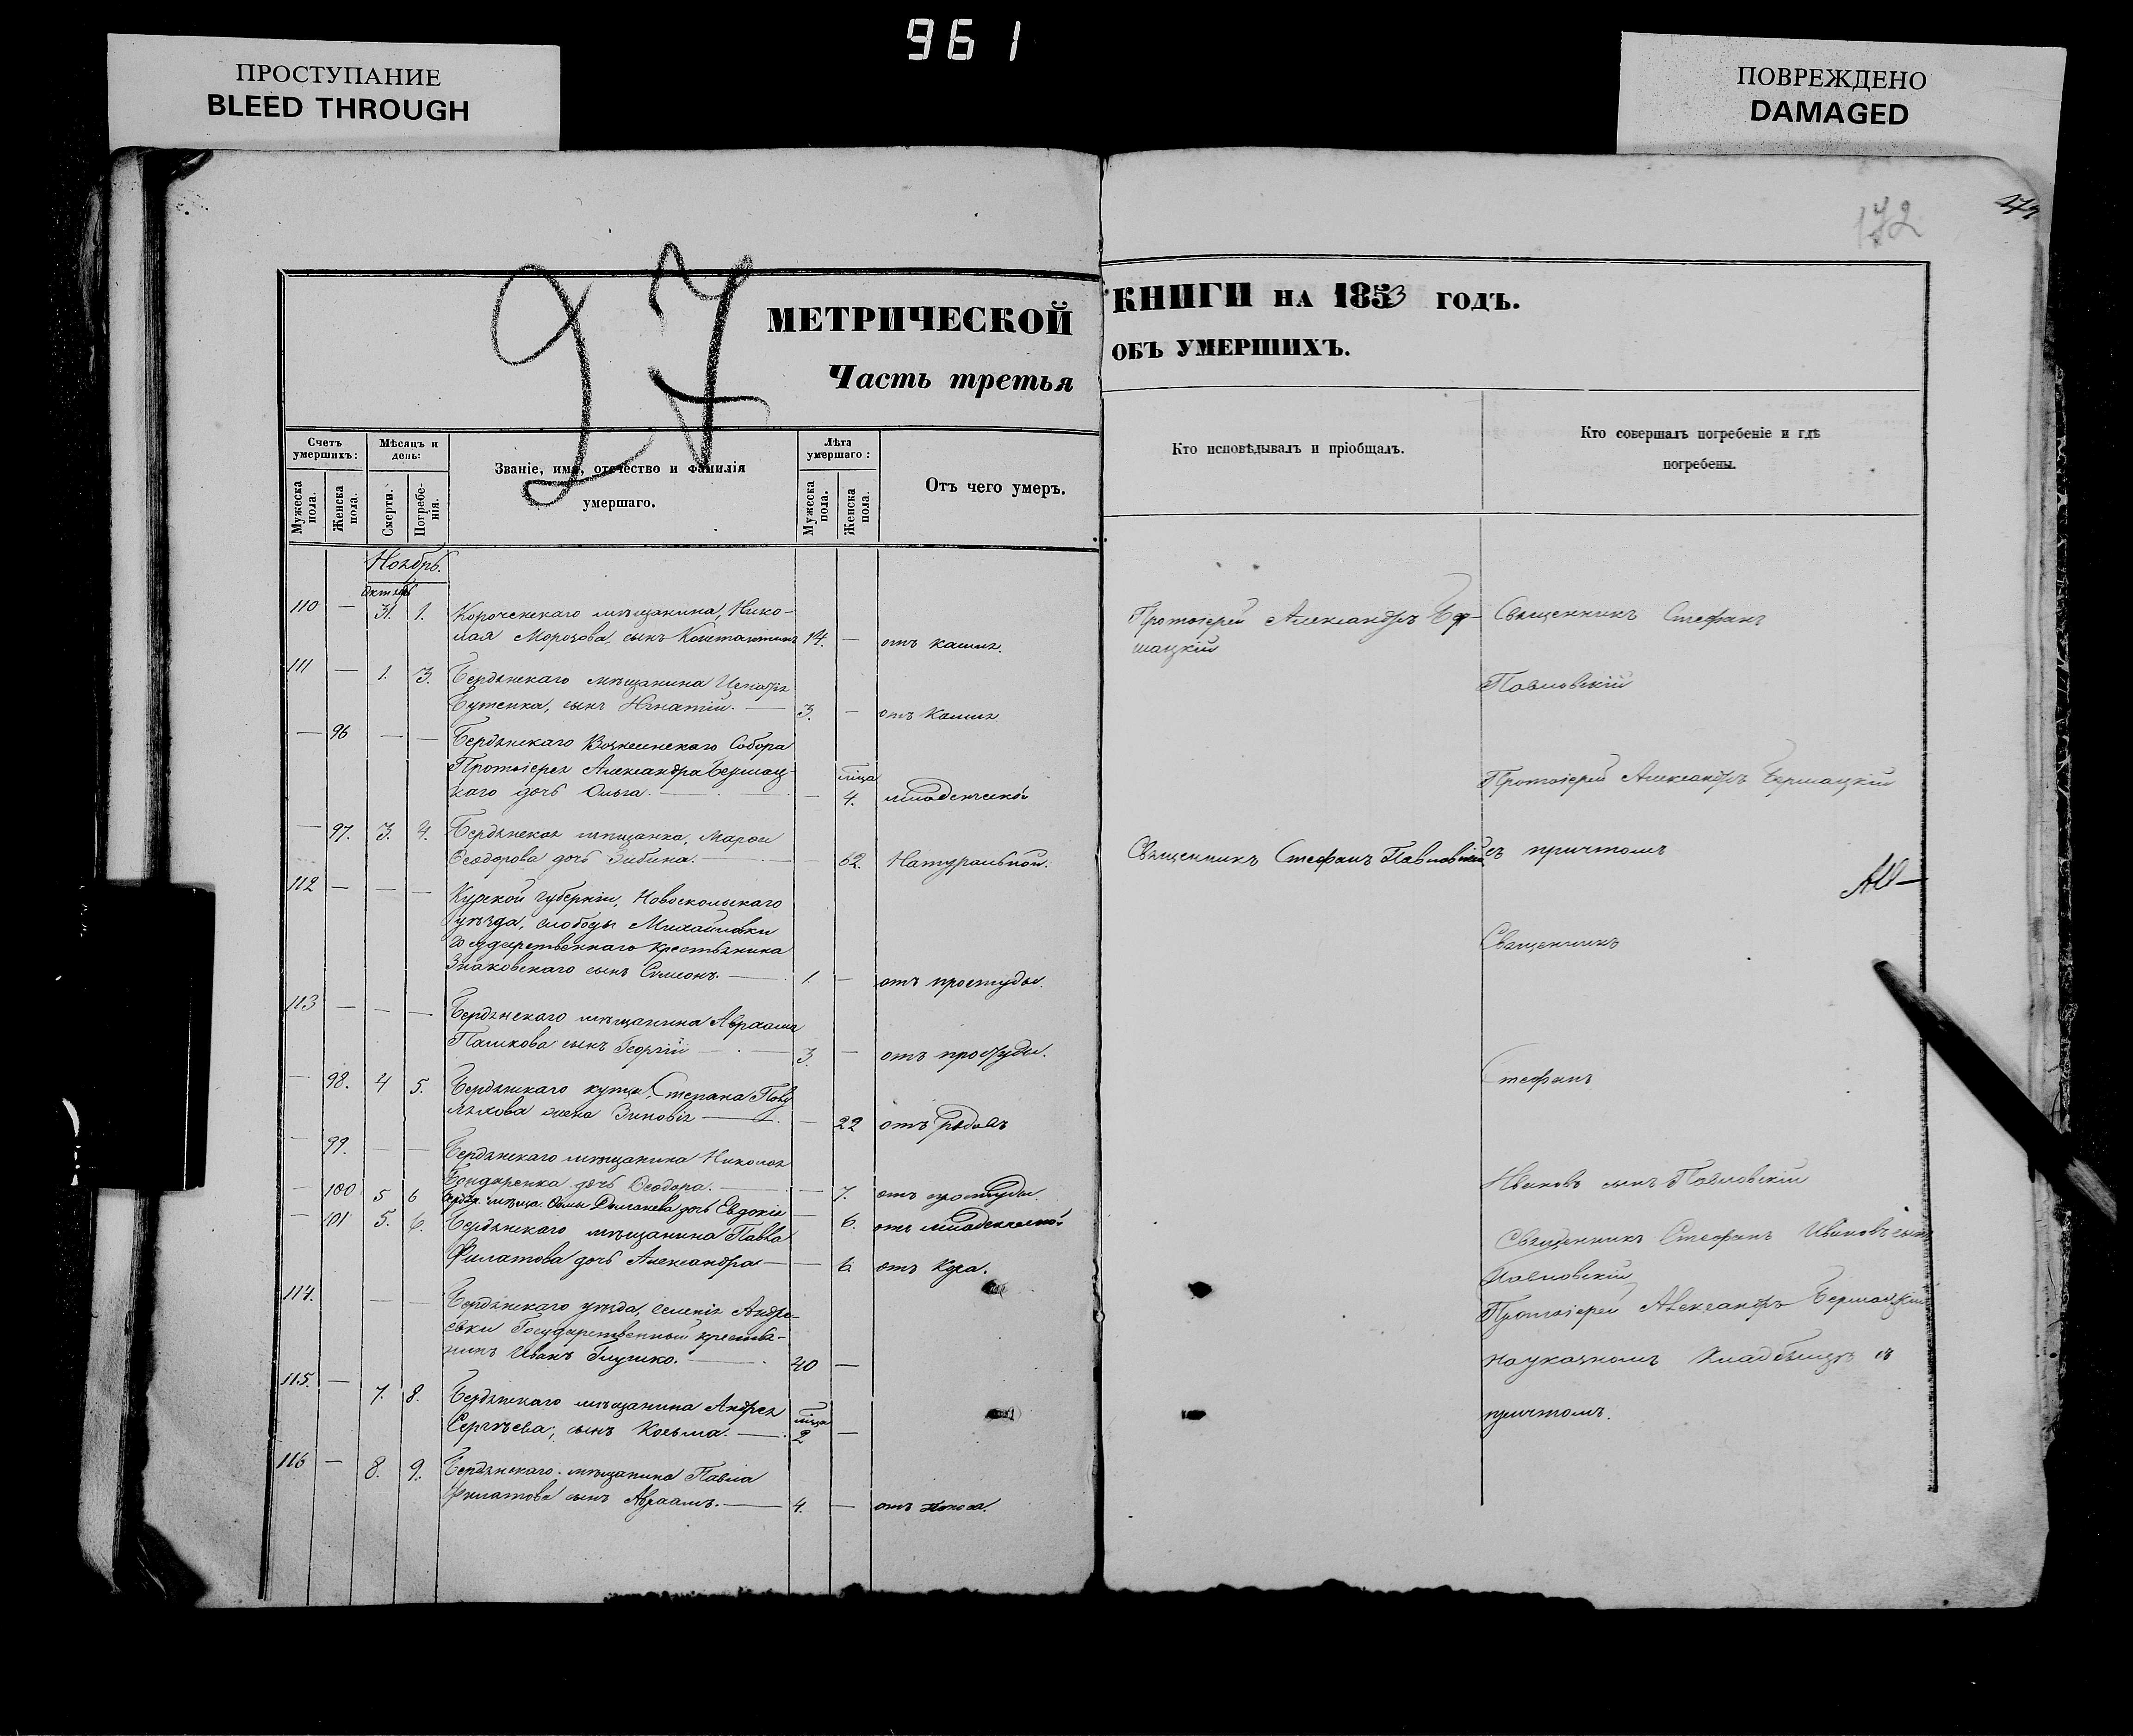 961
ПРОСТУПАНИЕ
BLEED THROUGH
ПОВРЕЖДЕНО
DAMAGED
172
27
МЕТРИЧЕСКОЙ
Часть третья
КНИГИ НА 1853 ГОДЪ.
ОБЪ УМЕРШИХЪ.
Счетъ умершихъ:
Мужеска пола.
Женска пола.
Мѣсяцъ и день:
Смерти.
Погребенія.
Званіе, имя, отечество и фамилія
умершаго.
Лѣта умершаго:
Мужеска пола.
Женска пола.
Отъ чего умеръ.
Кто исповѣдывалъ и пріобщалъ.
Кто совершалъ погребеніе и гдѣ
погребены.
Ноябрь.
Октябрь
110 — 31. 1. Короченскаго мѣщанина, Нико-
лая Морозова, сынъ Константинъ 14. — отъ кашля.
Протоіерей Александръ
Священникъ Стефанъ
111 — 1. 3. Бердянскаго мѣщанина
Бутенка, сынъ Игнатій. — 3. — отъ Кашля
Павловскій
— 96 — — Бердянскаго Вознесенскаго Собора
Протоіерея Александра Бершац-
каго дочь Ольга. — — мѣсяца 4. младенческой
Протоіерей Александръ Бершацкій
— 97. 3. 4. Бердянская мѣщанка, Марѳа
Ѳеодорова дочь Зибина. — 62. Натуральной.
Священникъ Стефанъ Павловскій
съ причтомъ
112 — — — Курской губерніи, Новооскольскаго
уѣзда, слободы Михайловки
государственнаго крестьянина
Знаковскаго сынъ Симеонъ. — 1. — отъ простуды.
Священникъ
113 — — — Бердянскаго мѣщанина Авраама
Пашкова сынъ Георгій — 3. — отъ простуды.
— 98. 4 5. Бердянскаго купца, Степана
жена Зиновія — — 22 отъ родовъ
Стефанъ
— 99. — — Бердянскаго мѣщанина Николая
Бондаренка дочь Ѳеодора. — — 7. отъ простуды.
Ивановъ сынъ Павловскій
— 100 5 6 дочь Евдокія — 6. отъ младенческой
— 101 5. 6. Бердянскаго мѣщанина Павла
Филатова дочь Александра — — 6. отъ Кора.
Священникъ Стефанъ Ивановъ сынъ
Павловскій
114. — — Бердянскаго уѣзда, селенія Андре-
евки Государственный крестья-
нинъ Иванъ — 40 —
Протоіерей Александръ Бершацкій
кладбищѣ съ
причтомъ.
115. — 7. 8. Бердянскаго мѣщанина Андрея
Сергѣева, сынъ Косьма. — мѣсяца 2 —
116 — 8. 9. Бердянскаго мѣщанина Павла
Филатова сынъ Авраамъ. — 4. — отъ